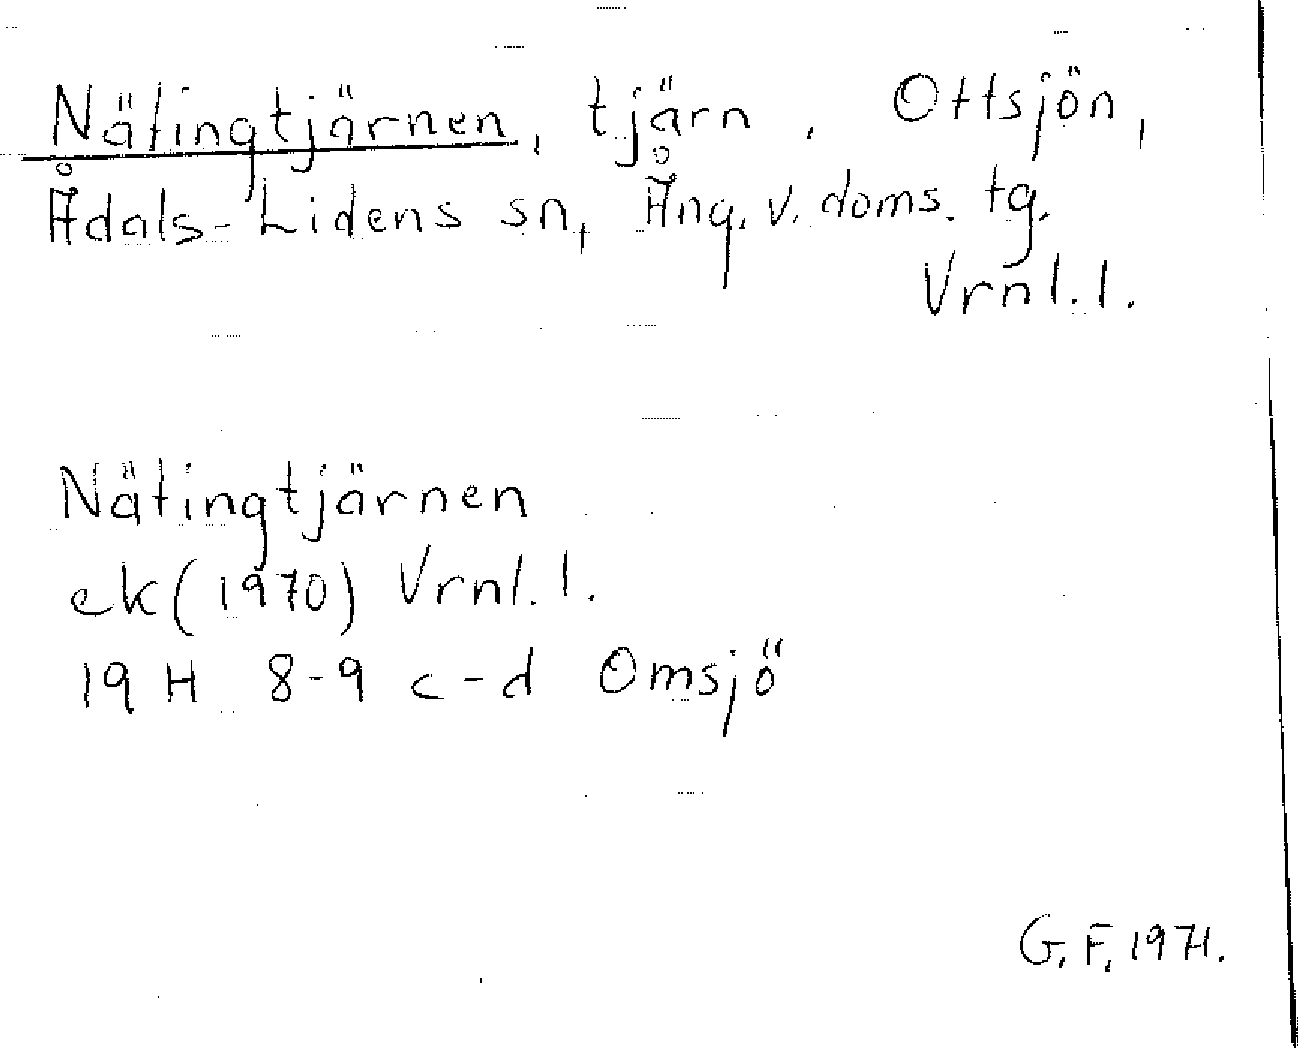 Nätingtjärnen, tjärn. Ottsjön,
Ådals-Lidens sn, Ång. v. doms. tg.
Vrnl. l.
Nätingtjärnen
ek (1970) Vrnl. l.
19 H 8-9 c-d Omsjö
G. F. 1971.